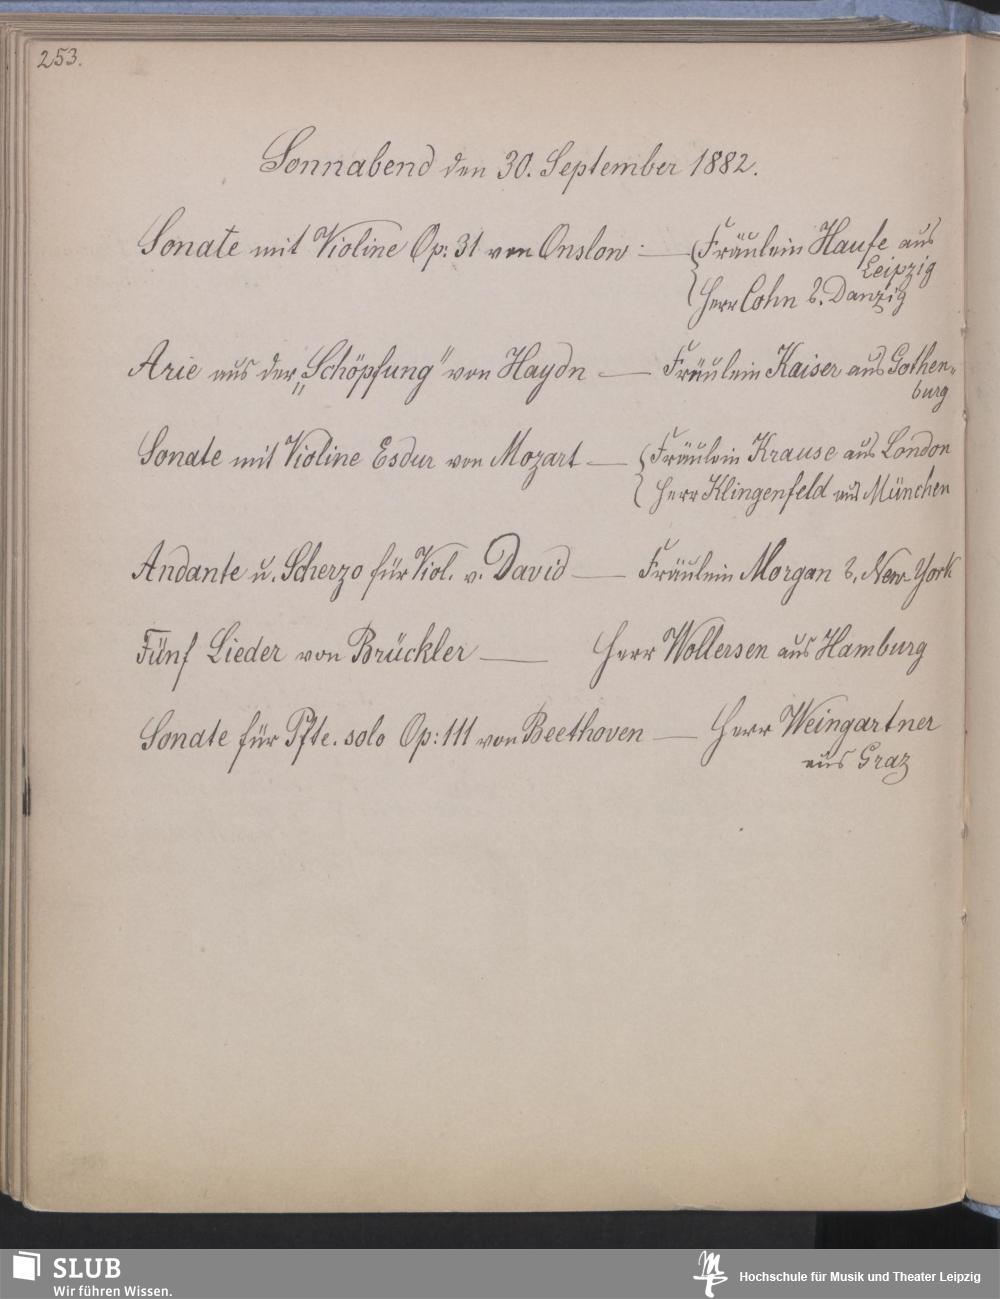 253.
Sonnabend den 30. September 1882.
Sonate mit Violine Op: 31 von Onslow — Fräulein Haufe aus
Leipzig
Herr Cohn a. Danzig
Arie aus der „Schöpfung" von Haydn — Fräulein Kaiser aus Gothen-
burg
Sonate mit Violine Esdur von Mozart — Fräulein Krause aus London
Herr Klingenfeld aus München
Andante u. Scherzo für Viol. v. David — Fräulein Morgan a. New-York
Fünf Lieder von Brückler — Herr Wollersen aus Hamburg
Sonate für Pfte. solo Op: 111 von Beethoven — Herr Weingartner
aus Graz
SLUB
Wir führen Wissen.
Hochschule für Musik und Theater Leipzig